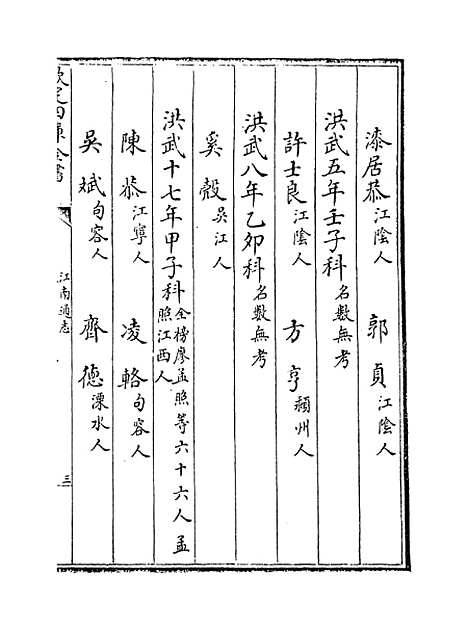 漆居恭江陰人　郭貞江陰人
洪武五年壬子科名數無考
許士良江陰人　方亨潁州人
洪武八年乙卯科名數無考
奚殻吳江人
洪武十七年甲子科全榜廖孟照等六十六人孟照江西人
陳恭江寧人　凌輅句容人
吳斌句容人　齊德溧水人
欽定四庫全書
江南通志
三